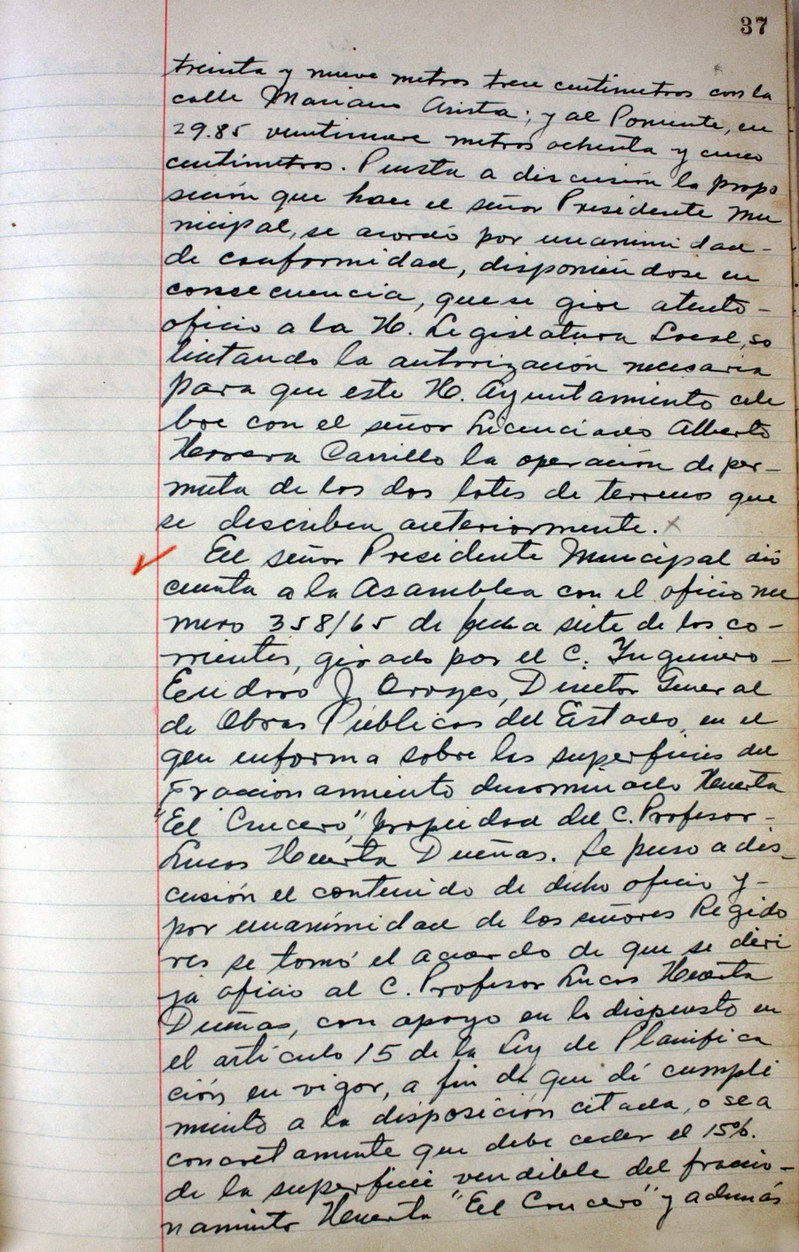 37
treinta y nueve metros trece centimetros con la
calle Mariano Arista; y al Poniente, en
29.85 veintinueve metros ochenta y cinco
centimetros. Puesta a discusión la propo
sición que hace el señor Presidente Mu
nicipal, se acordó por unanimidad -
de conformidad, disponiéndose en
consecuencia, que se gire atento -
oficio a la H. Legislatura Local, so
licitando la autorización necesaria
para que este H. Ayuntamiento cele
bre con el señor Licenciado Alberto
Herrera Carrillo la operación de per-
muta de los dos lotes de terrenos que
se describen anteriormente. x
El señor Presidente Municipal dió
cuenta a la Asamblea con el oficio nu
mero 358/65 de fecha siete de los co-
rrientes, girado por el C. Ingeniero -
J. Orozco, Director General
de Obras Públicas del Estado, en el
que informa sobre las superficies del
Fraccionamiento denominado Huerta
"El Crucero", propiedad del C. Profesor -
Lucas Huerta Dueñas. Se puso a dis-
cusión el contenido de dicho oficio y -
por unanimidad de los señores Regido
res se tomó el acuerdo de que se diri
ja oficio al C. Profesor Lucas Huerta
Dueñas, con apoyo en lo dispuesto en
el artículo 15 de la Ley de Planifica
ción en vigor, a fin de que dé cumpli
miento a la disposición citada, o sea
concretamente que debe ceder el 15%.
de la superficie vendible del fraccio-
namiento Huerta "El Crucero" y además